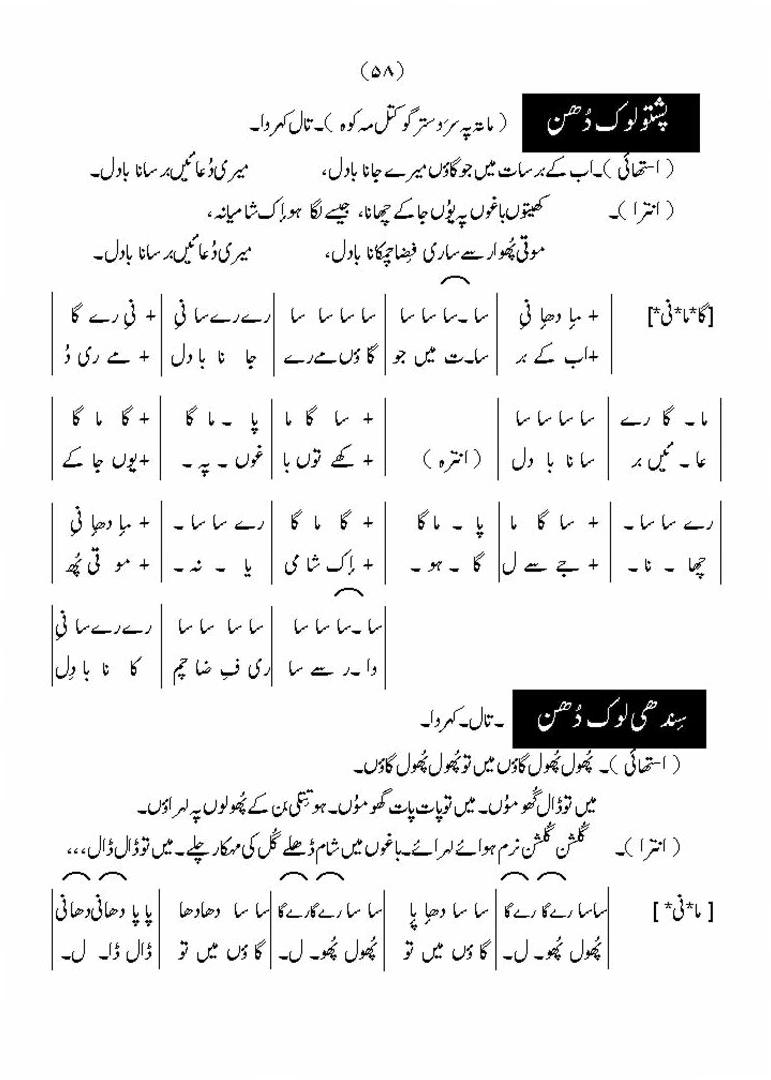 (۵۸)
پشتو لوک دُھن (ماتہ پہ سرَ دستر گو کتل مہ کوہ)۔ تال کہروا۔
(استھائی)۔ اب کے برسات میں جو گاؤں میرے جانا بادل، میری دُعائیں برسانا بادل۔
(انترا)۔ کھیتوں باغوں پہ یوُں جا کے چھانا، جیسے لگا ہو اِک شامیانہ،
موتی پُھوار سے ساری فِضا چمکانا بادل، میری دُعائیں برسانا بادل۔
[گا* ما* نی*] + ما دھا نی | سا ۔سا سا سا | سا سا سا سا | رے رے سا نی | + نی رے گا
+اب کے بر | سا۔ت میں جو | گا ؤں مے رے | جا نا با دل | + مے ری دُ
ما۔ گا رے | سا سا سا سا | + سا گا ما | پا ۔ ما گا | + گا ما گا
عا۔ ئیں بر | سا نا با دل (انترہ) | + کھے توں با | غوں ۔ پہ ۔ | +یوں جا کے
رے سا سا ۔ | + سا گا ما | پا ۔ ما گا | + گا ما گا | رے سا سا ۔ | + ما دھا نی
چھا ۔ نا۔ | + جے سے ل | گا ۔ ہو ۔ | + اِک شا می | یا ۔ نہ ۔ | + مو تی پُھ
سا ۔سا سا سا | سا سا سا سا | رے رے سا نی
وا ۔ر سے سا | ری فِ ضا چم | کا نا با دِل
سِندھی لوک دُھن ۔ تال۔ کہروا۔
(استھائی)۔ پُھول پُھول گاؤں میں تو پُھول پُھول گاؤں۔
میں تو ڈال گُھوموُں۔ میں تو پات پات گھوموُں۔ ہو تِتلی بن کے پُھولوں پہ لہراؤں۔
(انترا)۔ گُلشن گُلشن نرم ہوائے لہرائے۔ باغوں میں شام ڈھلے گُل کی مہکار چلے۔ میں تو ڈال ڈال،،،
[ما* نی*] ساسا رے گا رے گا | سا سا دھا پا | سا سا رے گا رے گا | سا سا دھا دھا | پا پا دھانی دھانی
پُھول پُھو۔ ل۔ | گا ؤں میں تو | پُھول پُھو۔ ل۔ | گا ؤں میں تو | ڈال ڈا۔ ل۔